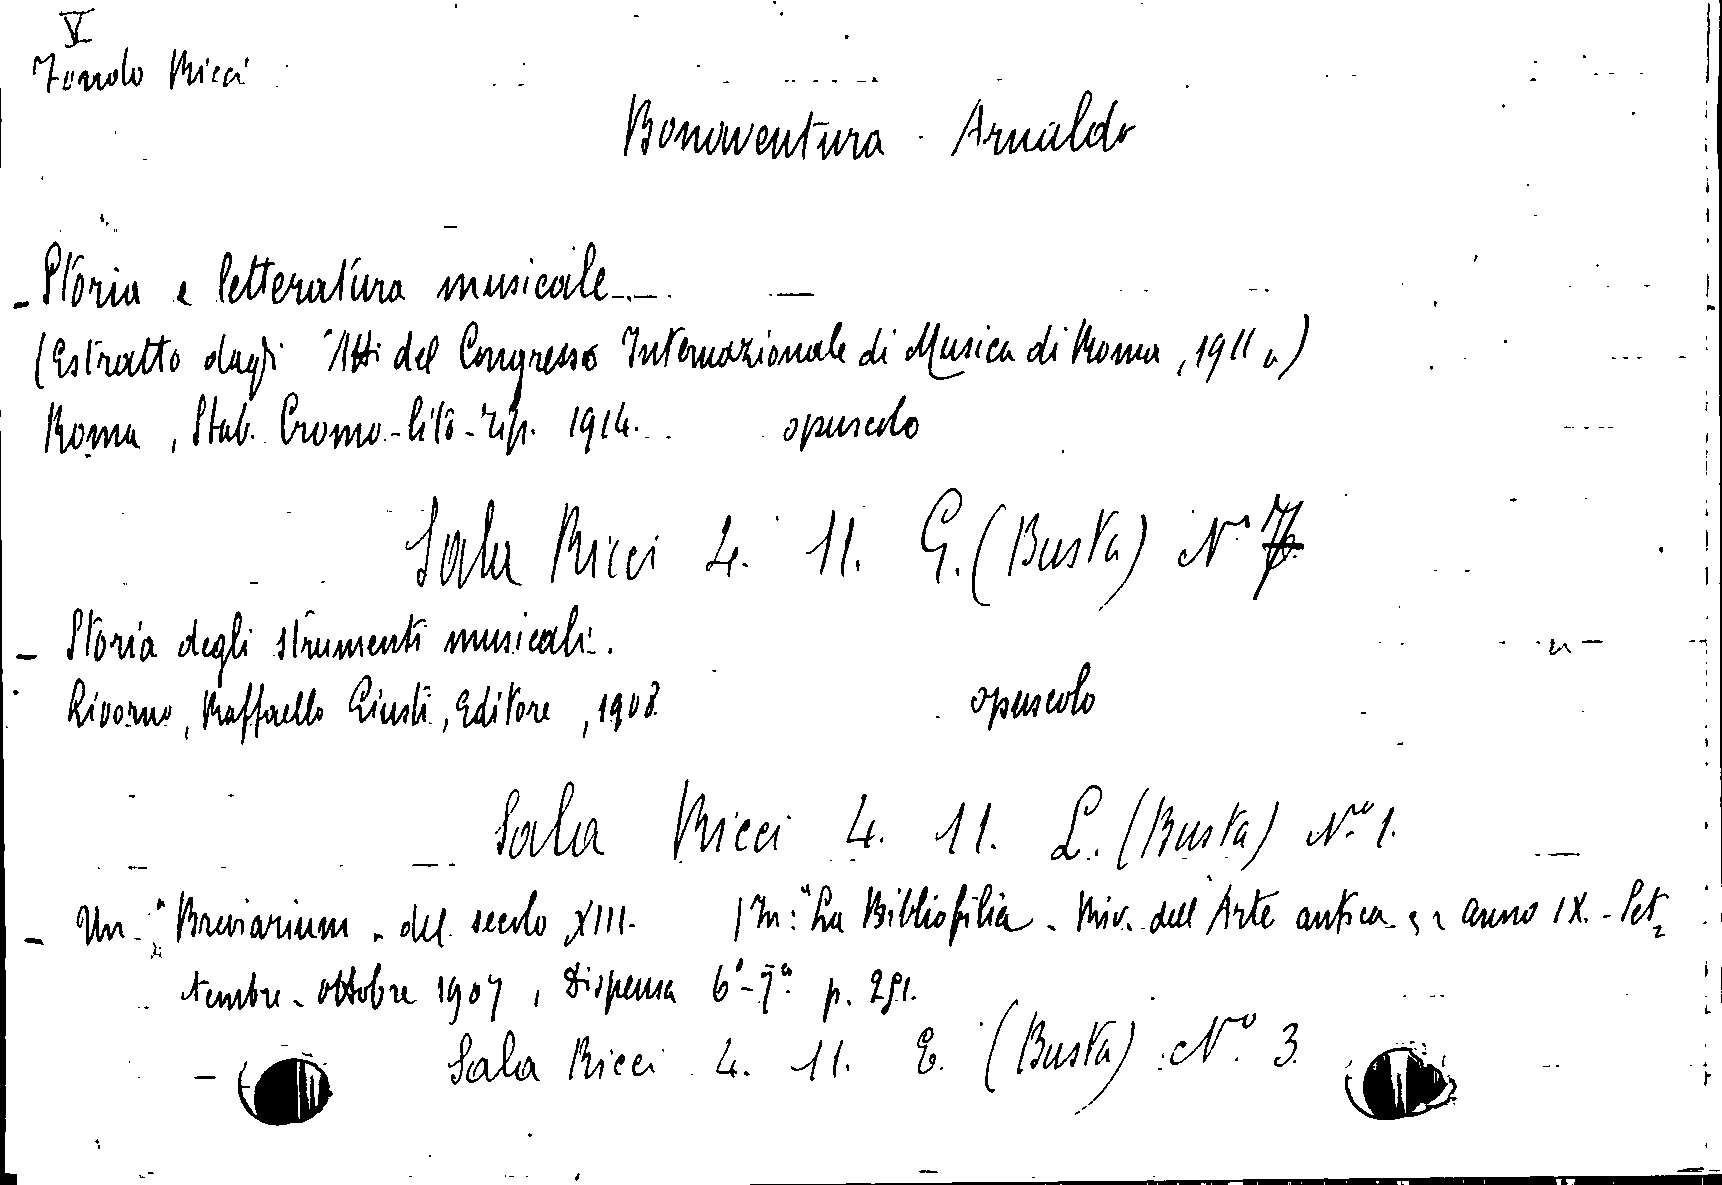 V
Fondo Ricci
Bonaventura Arnaldo
- Storia e letteratura musicale -
(Estratto dagli "Atti del Congresso Internazionale di Musica di Roma, 1911")
Roma, Stab. Cromo-lito-tip. 1914. opuscolo
Sala Ricci 4. 11. G. (Busta) N°
- Storia degli strumenti musicali.
Livorno, Raffaello Giusti, Editore, 1908 opuscolo
Sala Ricci 4. 11. L. (Busta) N.° 1.
- Un "Breviarium" del secolo XIII. (In: "La Bibliofilia - Riv. dell'Arte antica" anno IX. - Set=
tembre-ottobre 1907, Dispensa 6ª-7ª p. 251.
Sala Ricci 4. 11. E. (Busta) N.° 3.